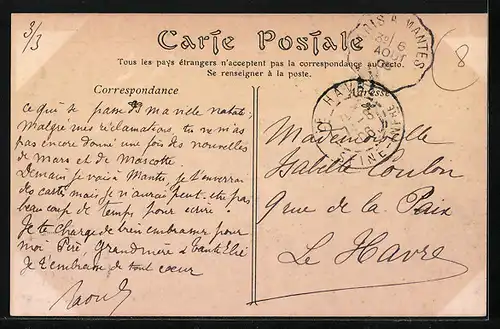 3/3
8
Carte Postale
Tous les pays étrangers n'acceptent pas la correspondance au recto.
Se renseigner à la poste.
Correspondance
ce qui se passe ds ma ville natale.
Malgré mes réclamations, tu ne m'as
pas encore donné une fois des nouvelles
de Mars et de Mascotte.
Demain je vais à Mantes, je t'enverrai
des cartes mais je n'aurai peut-être pas
beaucoup de temps pour écrire.
Je te charge de bien embrasser pour
moi Père, Grand mère &
Je t'embrasse de tout coeur
Raoul
PARIS A MANTES
6
AOUT
LE HAVRE
Adresse
Mademoiselle
Coulon
9 rue de la Paix
Le Havre